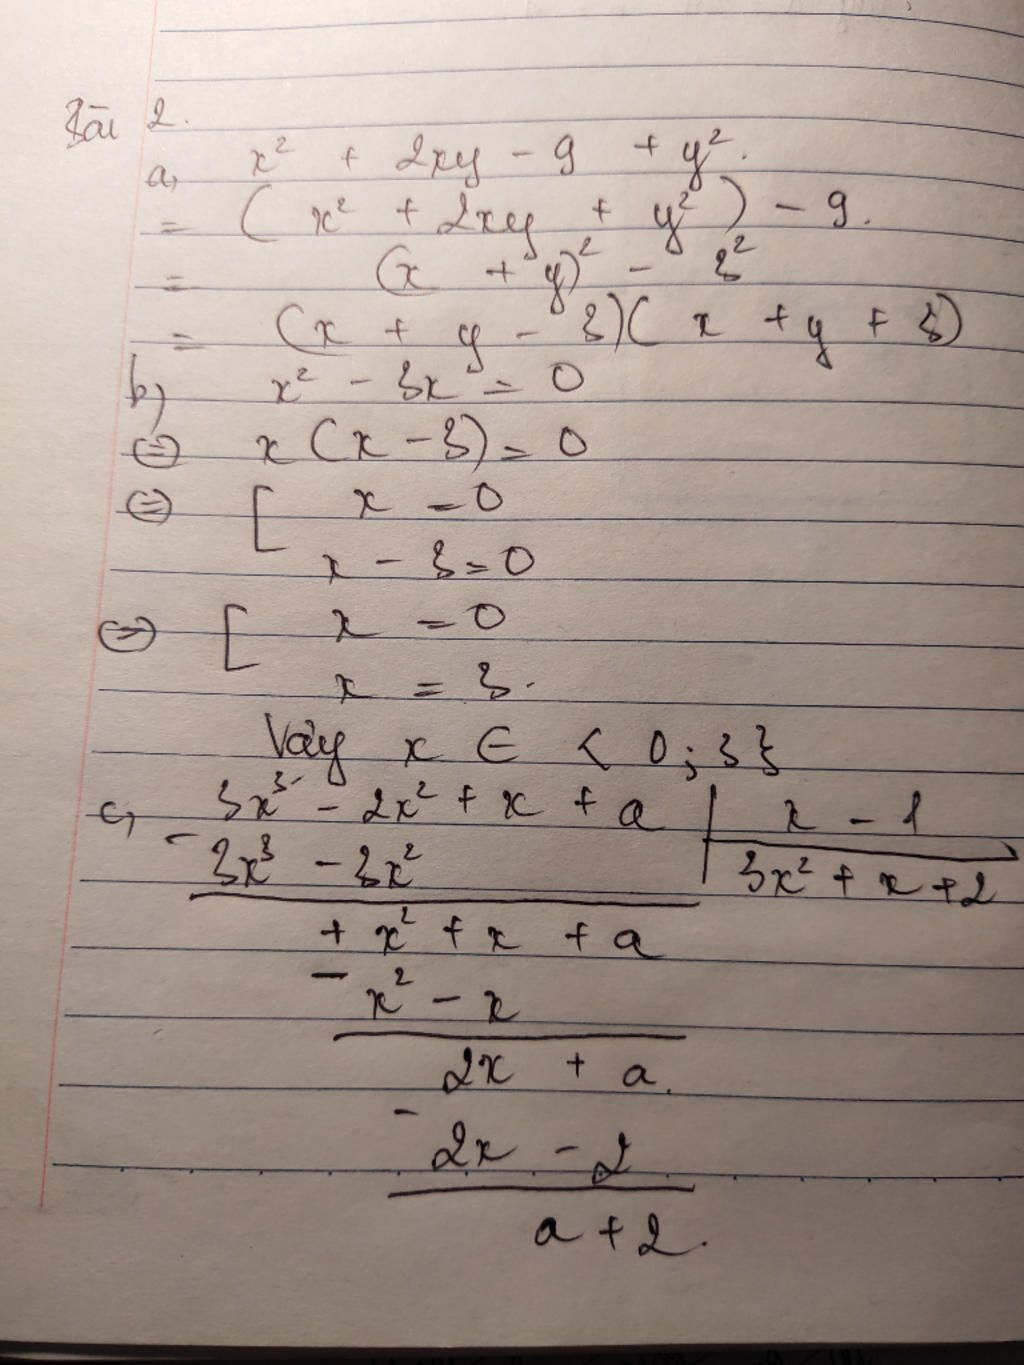 Bài 2.
a, x² + 2xy - 9 + y².
= (x² + 2xy + y²) - 9.
= (x + y)² - 3²
= (x + y - 3)(x + y + 3)
b) x² - 3x = 0
⇔ x(x - 3) = 0
⇔ [ x = 0
x - 3 = 0
⇔ [ x = 0
x = 3.
Vậy x ∈ {0; 3}
c, 3x³ - 2x² + x + a | x - 1
- 3x³ - 3x² | 3x² + x + 2
+ x² + x + a
- x² - x
2x + a.
- 2x - 2
a + 2.